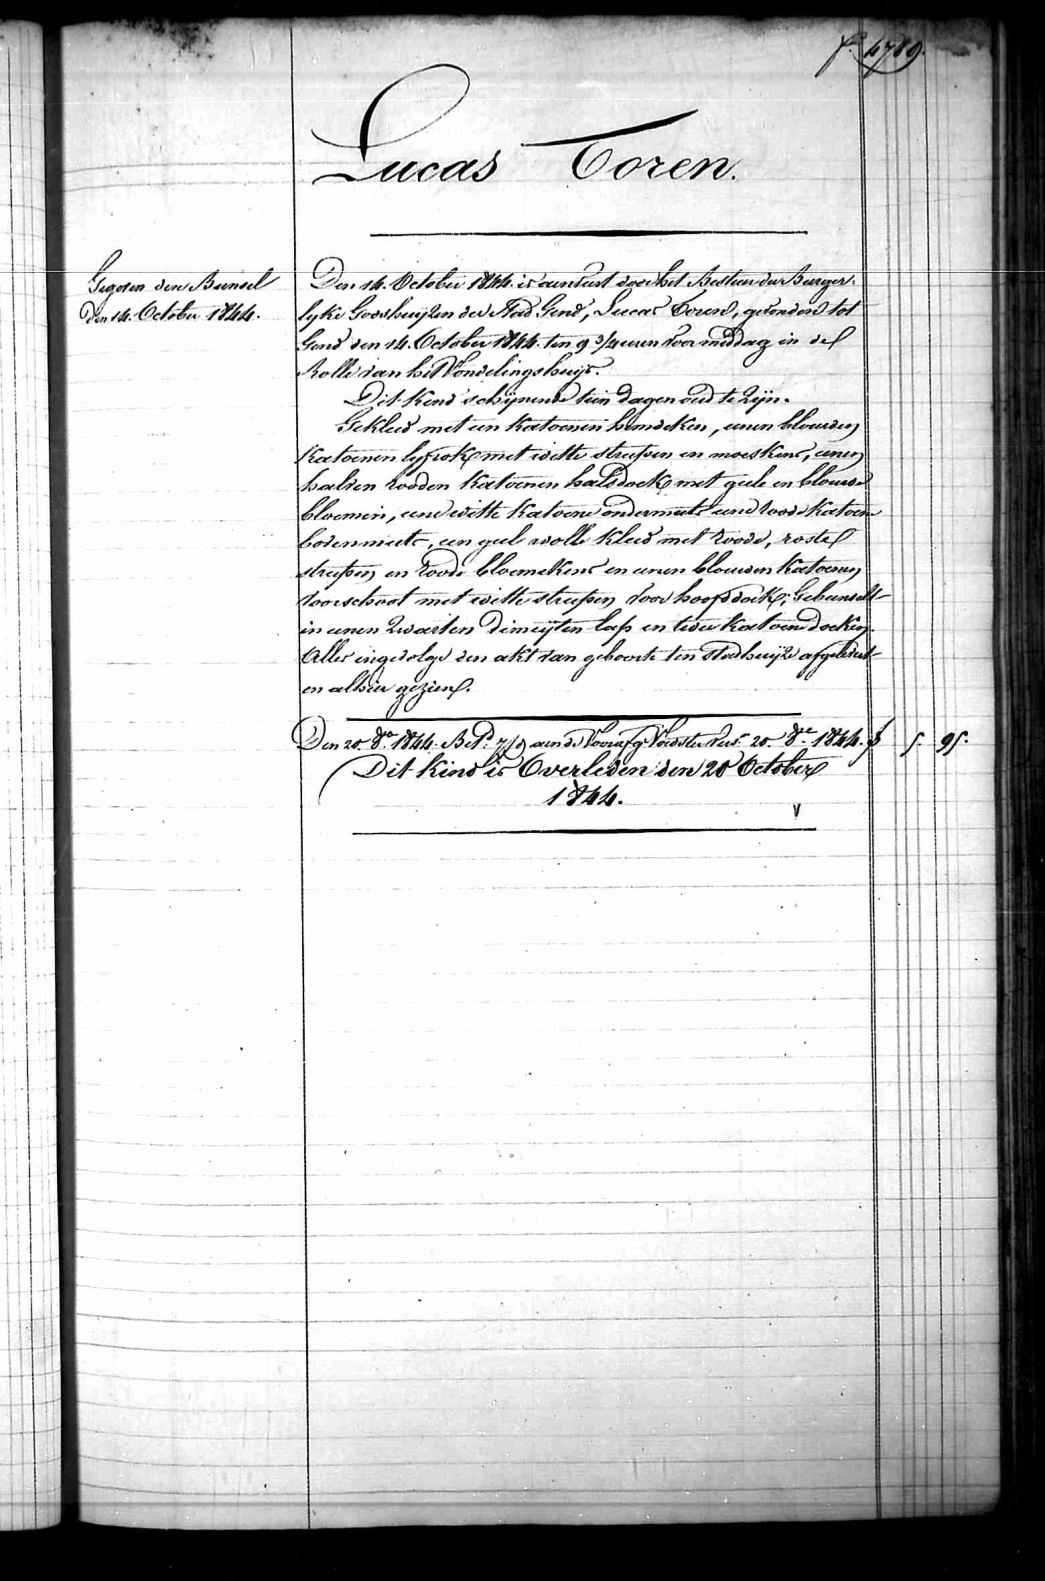 f.º 4789.
Lucas Toren.
Gegeven den Bunsel
den 14. October 1844.
Den 14. October 1844. is aenveirt door het Bestuer der Burger-
lyke Godshuyzen der Stad Gend, Lucas Toren, gevonden tot
Gend den 14. October 1844. ten 9 3/4 uren voor middag in de
Rolle van het Vondelingshuys.
Dit Kind schynende tien dagen oud te zyn.
Gekleed met een Katoenen hemdeken, eenen blauwen
Katoenen lyfrok met witte streepen en moeskens, eenen
halven rooden Katoenen halsdoek met geele en blauwe
bloemen, eene witte Katoene ondermuts eene roode Katoene
bovenmuts, een geel wolle kleed met roode, roste
streepen en roode bloemekens en eenen blauwen Katoenen
voorschoot met witte streepen voor hoofddoek; Gebunselt
in eenen zwarten Dimeyten lap en twee Katoene doeken.
Alles ingevolge den akt van geboorte ten stadhuyze afgeleverd
en alhier gezien.
Den 20. 8.re 1844. Bet. 7/9 aen de Voorafg. Voedster tot 20. 8.re 1844. f 5. 95.
Dit kind is Overleden den 20 October
1844.
V